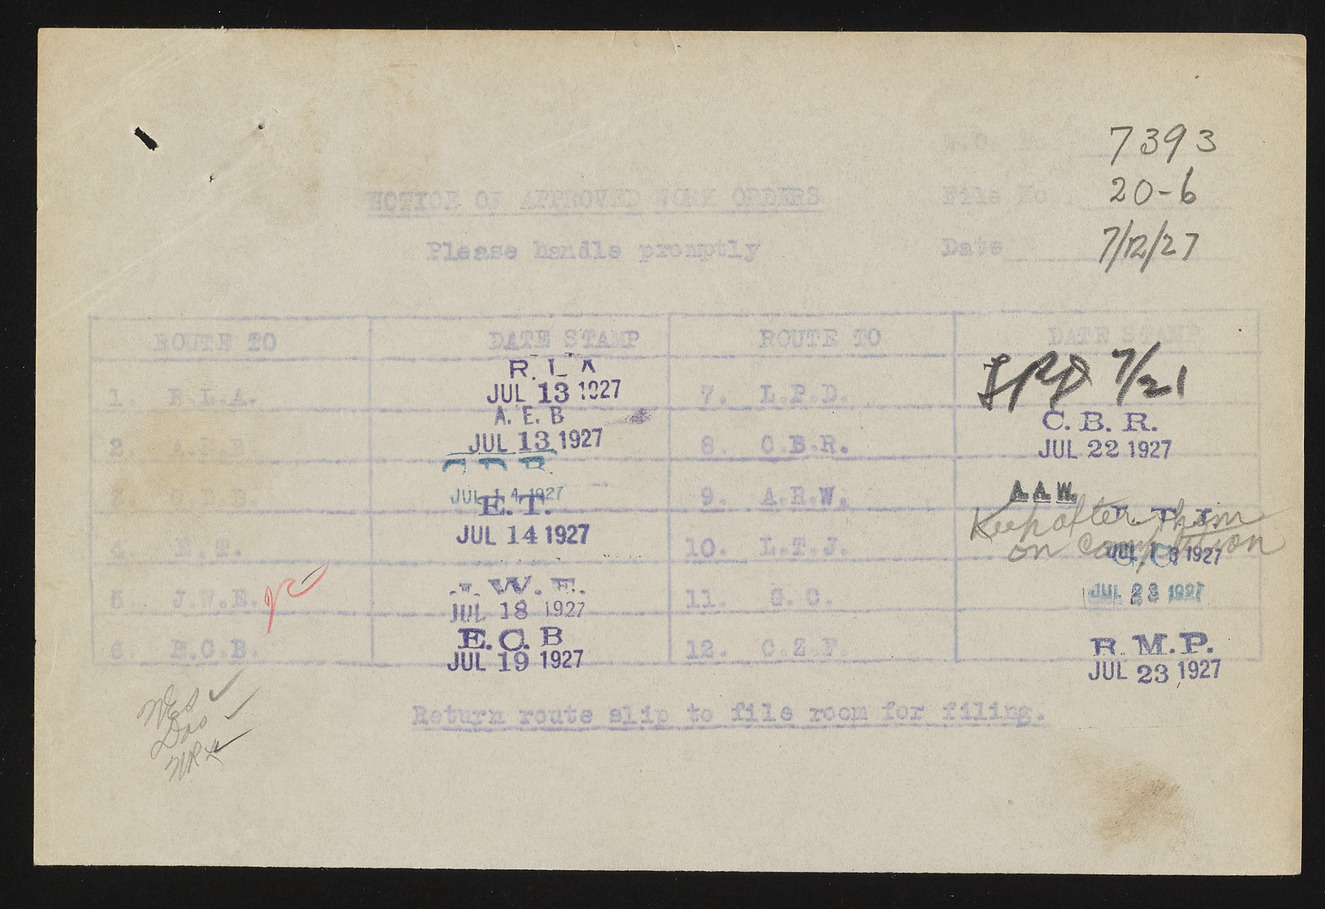 W.O. No. 7393
NOTICE OF APPROVED WORK ORDERS File No. 20-6
Please handle promptly Date 7/12/27
ROUTE TO DATE STAMP ROUTE TO DATE STAMP
1. R.L.A. R. L. A JUL 13 1927 7. L.P.D. LPD 7/21
2. A.E.B. A. E. B JUL 13 1927 8. C.B.R. C. B. R. JUL 22 1927
3. JUL 14 1927 9. A.R.W. A. A. W.
4. E.T. E. T. JUL 14 1927 10. L.T.J. L. T. J. 1927
Keep after them
on completion
5. J.W.E. J. W. E. JUL 18 1927 11. G. C. G. C. JUL 23 1927
6. E.C.B. E. C. B JUL 19 1927 12. C.Z.F. R. M. P. JUL 23 1927
Return route slip to file room for filing.